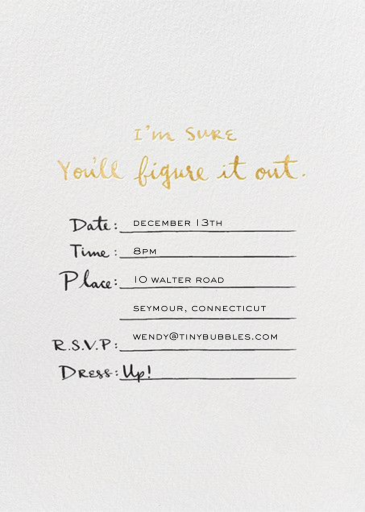 I'm SURE
You'll figure it out.
Date: DECEMBER 13TH
Time: 8PM
Place: 10 WALTER ROAD
SEYMOUR, CONNECTICUT
R.S.V.P: WENDY@TINYBUBBLES.COM
DRESS: Up!